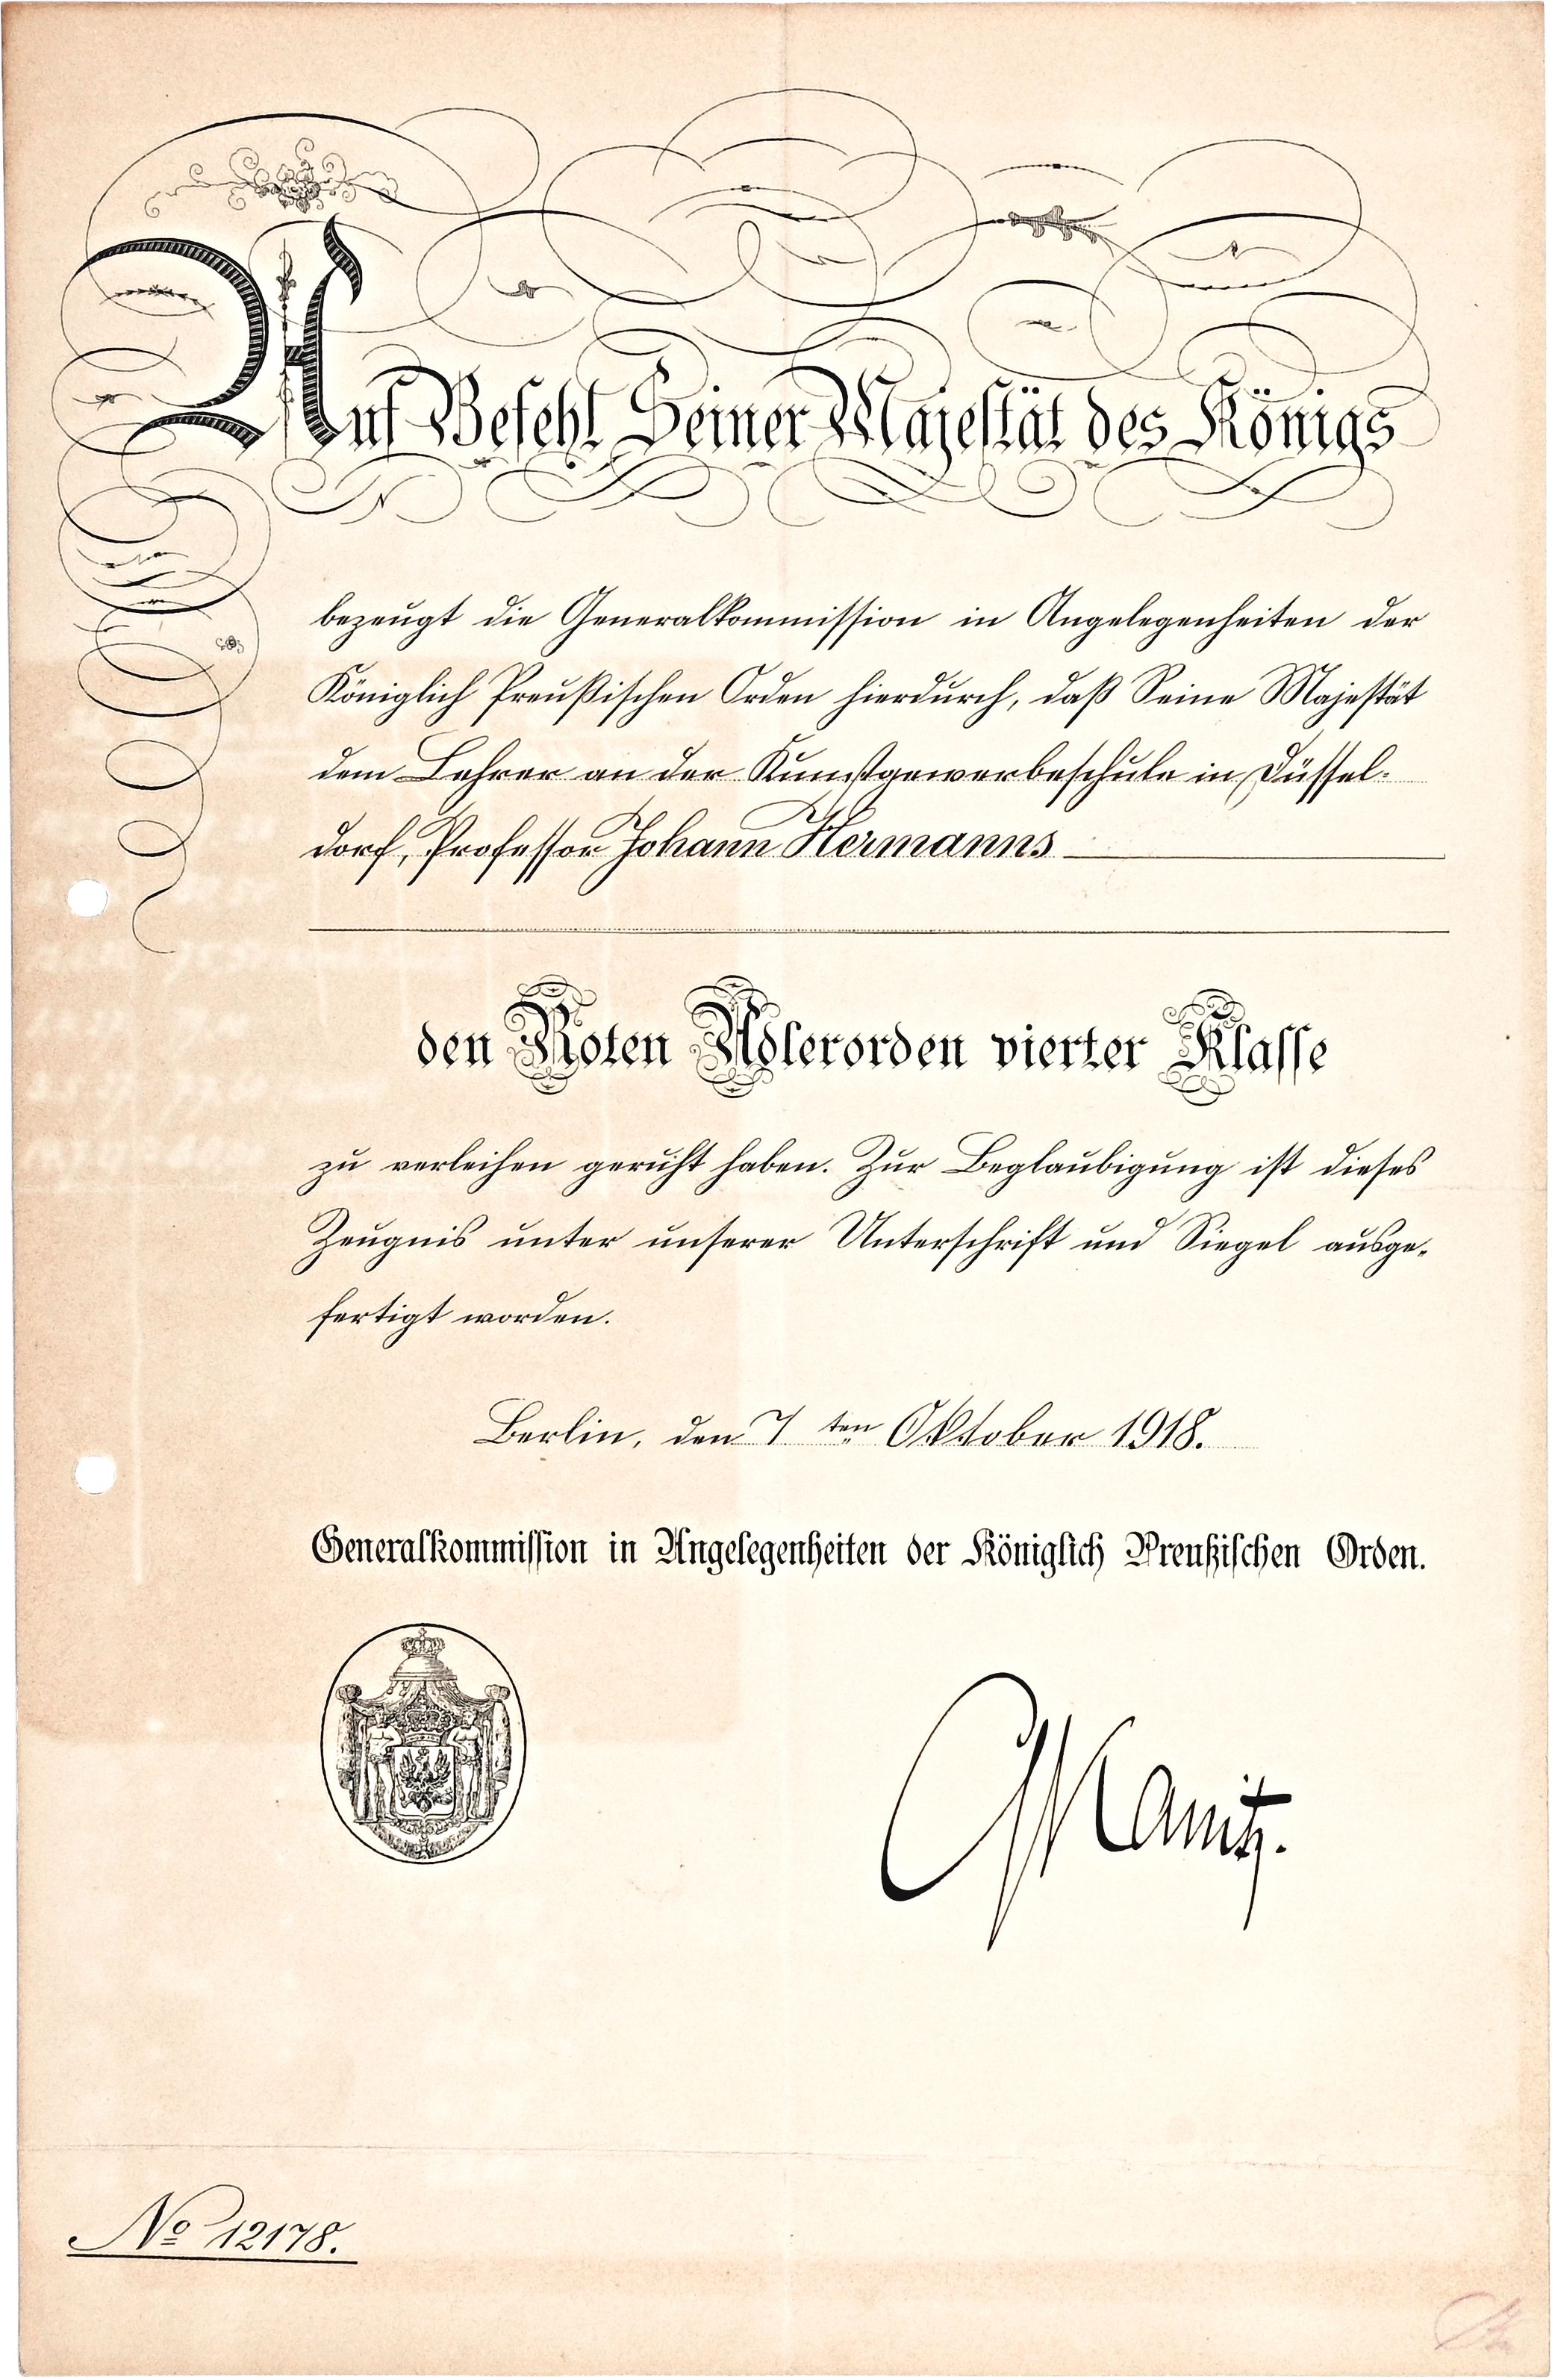 Auf Befehl Seiner Majestät des Königs
bezeugt die Generalkommission in Angelegenheiten der
Königlich Preußischen Orden hierdurch, daß Seine Majestät
dem Lehrer an der Kunstgewerbeschule in Düssel-
dorf, Professor Johann Hermanns
den Roten Adlerorden vierter Klasse
zu verleihen geruht haben. Zur Beglaubigung ist dieses
Zeugnis unter unserer Unterschrift und Siegel ausge-
fertigt worden.
Berlin, den 7 ten Oktober 1918.
Generalkommission in Angelegenheiten der Königlich Preußischen Orden.
No 12178.